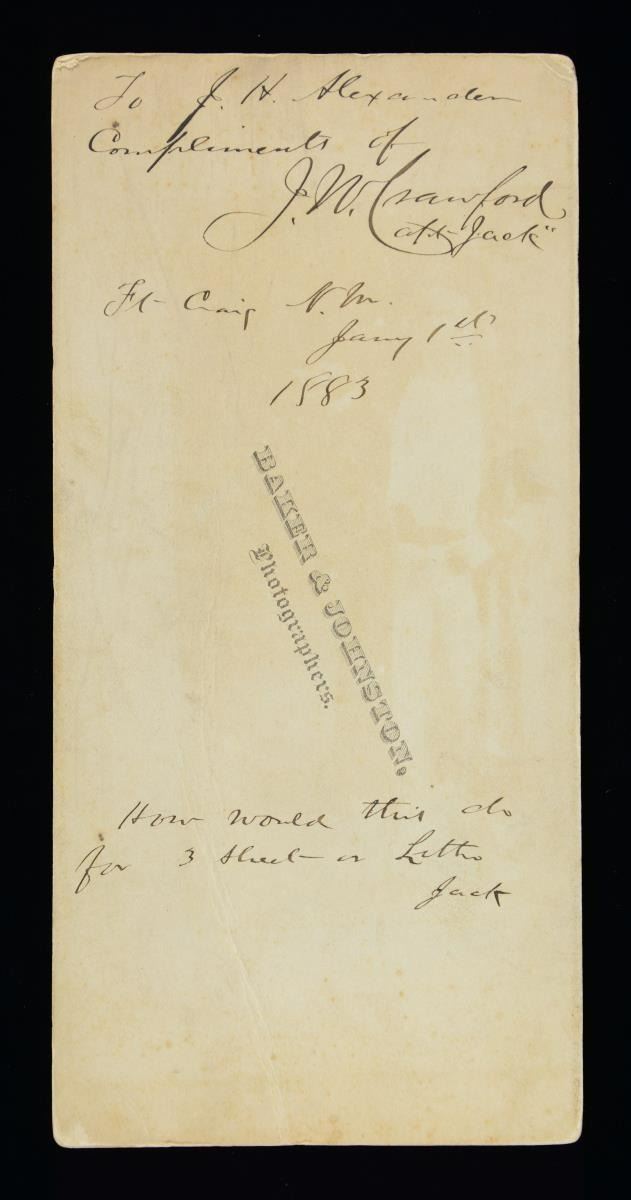 To J. H. Alexander
Compliments of
J. W. Crawford
Capt Jack"
Ft Craig N. M.
Jany 1st
1883
BAKER & JOHNSTON.
Photographers.
How would this do
for 3 sheet or Litho
Jack